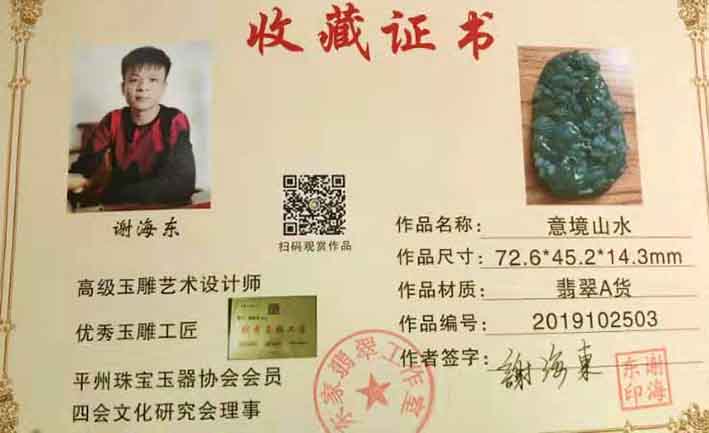 收藏证书
谢海东
扫码观赏作品
高级玉雕艺术设计师
优秀玉雕工匠
平州珠宝玉器协会会员
四会文化研究会理事
作品名称: 意境山水
作品尺寸: 72.6*45.2*14.3mm
作品材质: 翡翠A货
作品编号: 2019102503
作者签字: 謝海東
谢海东印
东家翡翠工作室